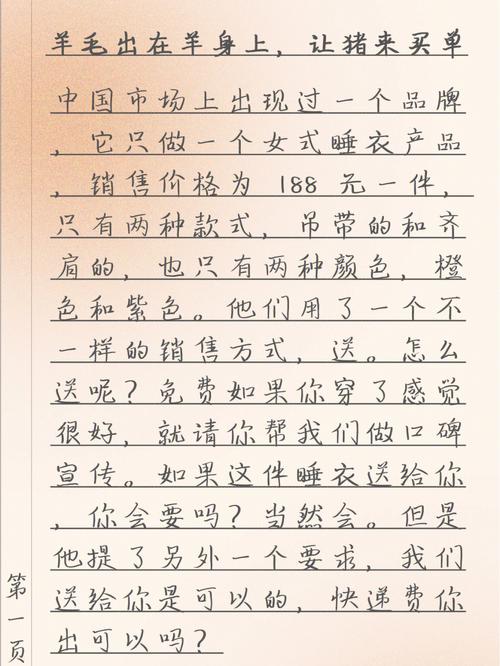 羊毛出在羊身上，让猪来买单
中国市场上出现过一个品牌
，它只做一个女式睡衣产品
，销售价格为 188 元一件，
只有两种款式，吊带的和齐
肩的，也只有两种颜色，橙
色和紫色。他们用了一个不
一样的销售方式，送。怎么
送呢？免费如果你穿了感觉
很好，就请你帮我们做口碑
宣传。如果这件睡衣送给你
，你会要吗？当然会。但是
他提了另外一个要求，我们
送给你是可以的，快递费你
出可以吗？
第一页